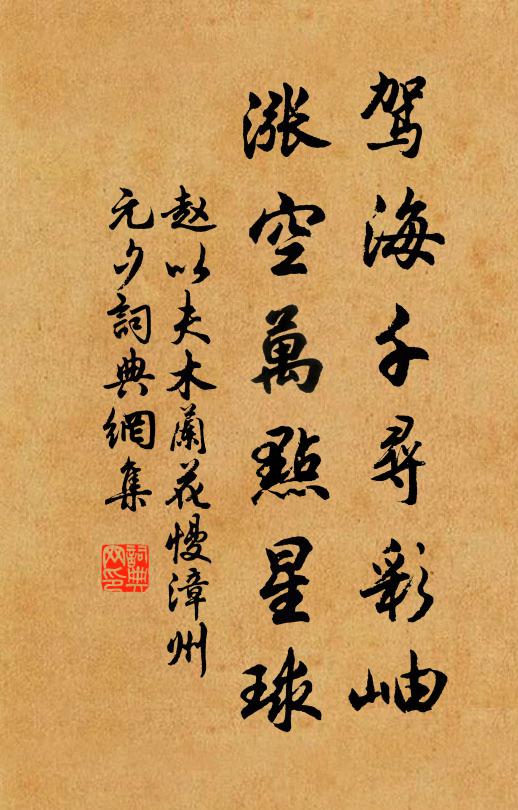 駕海千尋彩岫
漲空萬點星球
赵以夫木蘭花慢漳州
元夕詞典網集
詞典网印